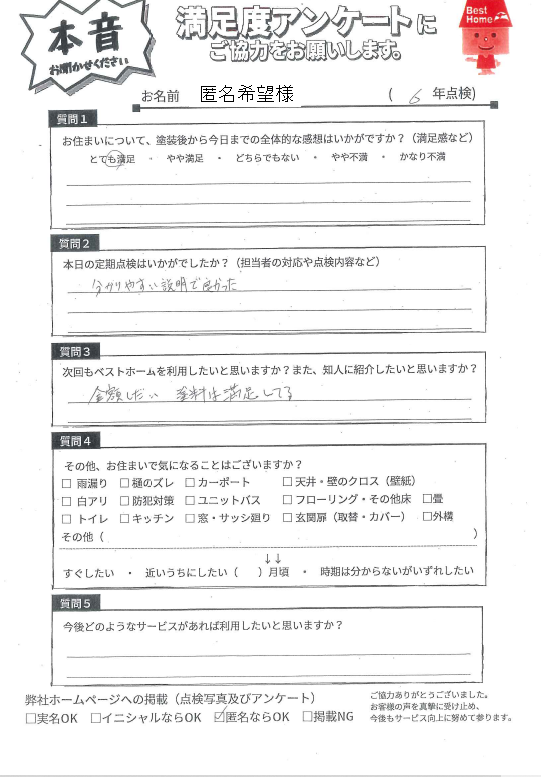 本音
お聞かせください
満足度アンケートに
ご協力をお願いします。
Best Home
お名前 匿名希望様 ( 6 年点検)
質問1
お住まいについて、塗装後から今日までの全体的な感想はいかがですか？（満足感など）
とても満足 ・ やや満足 ・ どちらでもない ・ やや不満 ・ かなり不満
質問2
本日の定期点検はいかがでしたか？（担当者の対応や点検内容など）
分かりやすい説明で良かった
質問3
次回もベストホームを利用したいと思いますか？また、知人に紹介したいと思いますか？
金額しだい 塗料は満足してる
質問4
その他、お住まいで気になることはございますか？
□ 雨漏り □ 樋のズレ □ カーポート □ 天井・壁のクロス（壁紙）
□ 白アリ □ 防犯対策 □ ユニットバス □ フローリング・その他床 □畳
□ トイレ □ キッチン □ 窓・サッシ廻り □ 玄関扉（取替・カバー） □外構
その他（ ）
↓↓
すぐしたい ・ 近いうちにしたい（ ）月頃 ・ 時期は分からないがいずれしたい
質問5
今後どのようなサービスがあれば利用したいと思いますか？
弊社ホームページへの掲載（点検写真及びアンケート）
□実名OK □イニシャルならOK ☑匿名ならOK □掲載NG
ご協力ありがとうございました。
お客様の声を真摯に受け止め、
今後もサービス向上に努めて参ります。